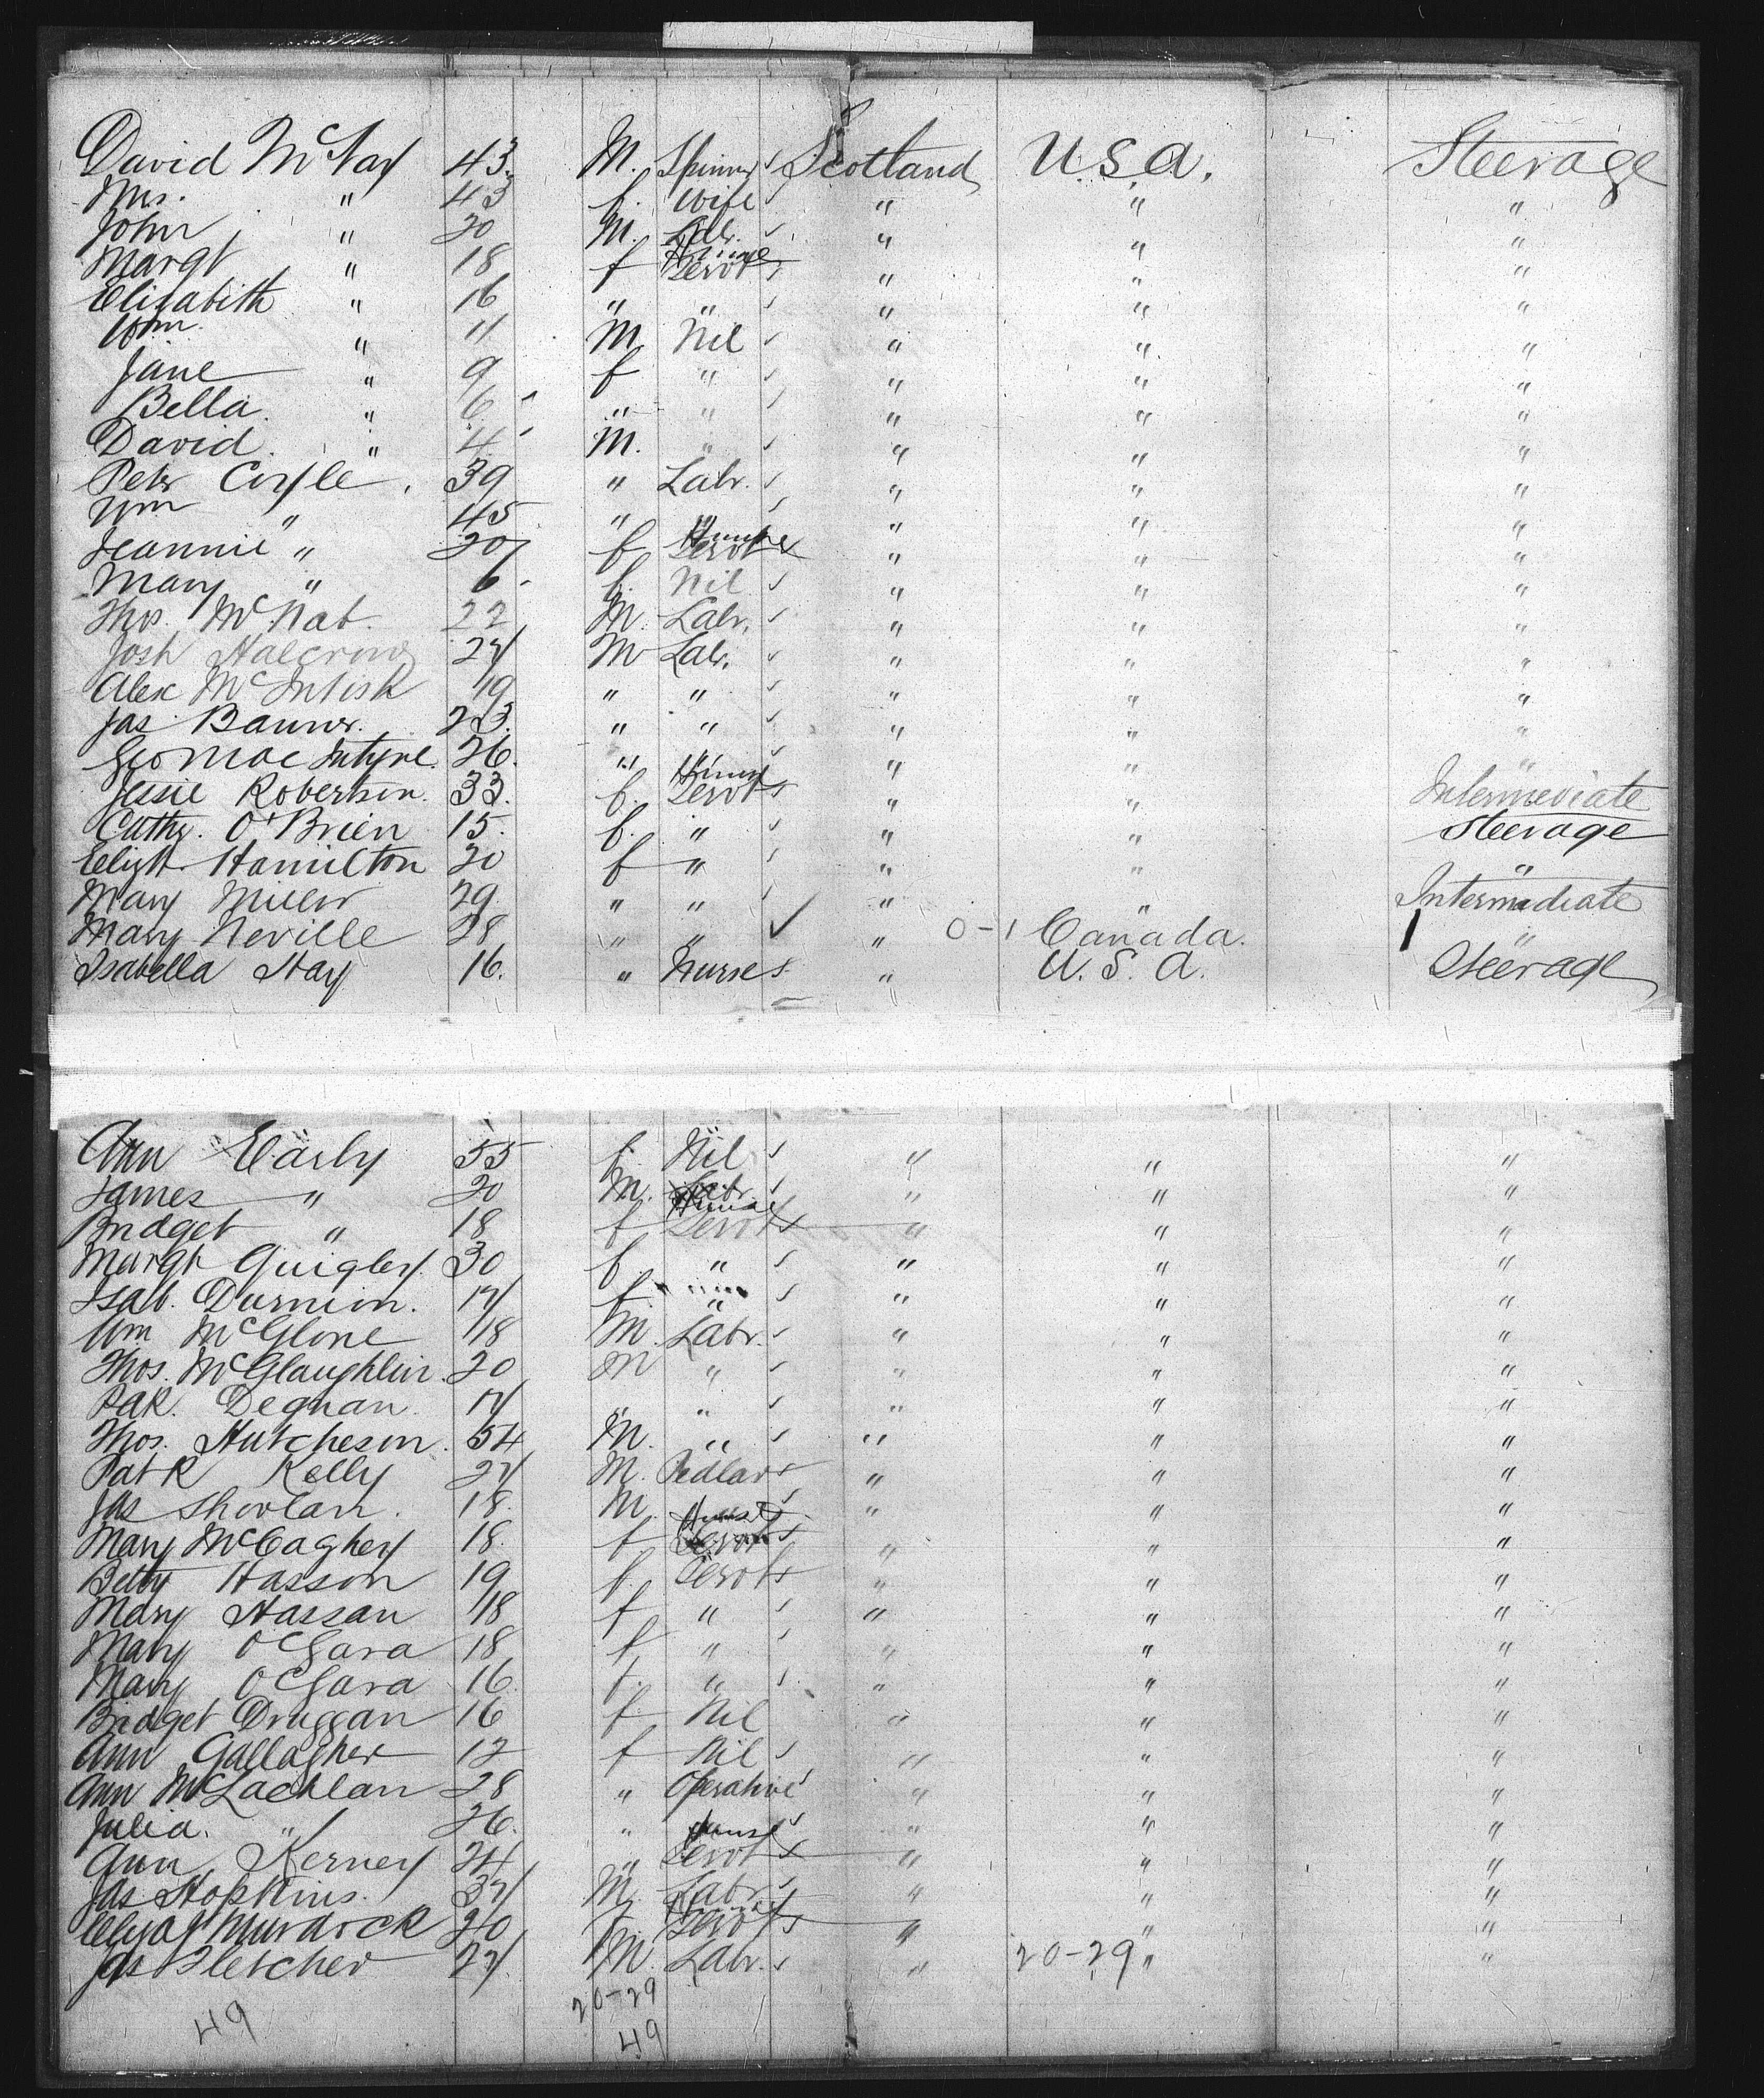 David McNay 43 M. Spinner Scotland U.S.A. Steerage
Mrs. " 43 f. Wife " " "
John " 20 M. Labr. " " "
Margt " 18 f Servt " " "
Elizabith " 16 " " " " "
Wm. " 11 M Nil " " "
Jane " 9 f " " " "
Bella. " 6 " " " " "
David. " 4 M. " " " "
Peter Coyle. 39 " Labr. " " "
Wm " 45 " " " " "
Jeannie " 20 f Servt " " "
Mary " 6 f. Nil " " "
Thos. McNab. 22 M. Labr. " " "
Josh Halcrow 24 M Labr. " " "
Alex McIntish 19 " " " " "
Jas. 23. " " " " "
Geo MacIntyre. 26. " " " " "
Jessie Robertson. 33. f. Servt " " Intermediate
Cathe. O'Brien 15. f. " " " Steerage
Elizth. Hamilton 20 f " " " "
Mary Miller 29 " " " " Intermediate
Mary Neville 28 " " " 0-1 Canada. 1 "
Isabella Hay 16. " Nurse " U.S.A. Steerage
Ann Early 55 f. Nil " " "
James " 20 M. Labr. " " "
Bridget " 18 f Servt " " "
Margt Quigley. 30 f. " " " "
Isab. Durnin. 17 f " " " "
Wm McGlone 18 M. Labr. " " "
Thos. McGlaughlin. 20 M " " " "
Pak. Degnan. 17 " " " " "
Thos. Hutcheson. 54 M. " " " "
Patk Kelly 27 M. Pedlar " " "
Jas Shovlan. 18. M. " " "
Mary McGaghey 18. f Servt " " "
Betty Hasson 19 f. Servt " " "
Mary Hassan 18 f " " " "
Mary O'Gara 18 f " " " "
Mary O'Gara 16. f. " " " "
Bridget Druggan 16 f Nil " " "
Ann Gallagher 12 f Nil " " "
Ann McLachlan 28 " Operative " " "
Julia. " 26. " " " "
Ann Kerney 24 " Servt " " "
Jas Hopkins. 37 M. Labr " " "
Murdock 20 f. Servt " " "
Jas Fletcher 27 M. Labr. " 20-29 " "
20-29
49 49